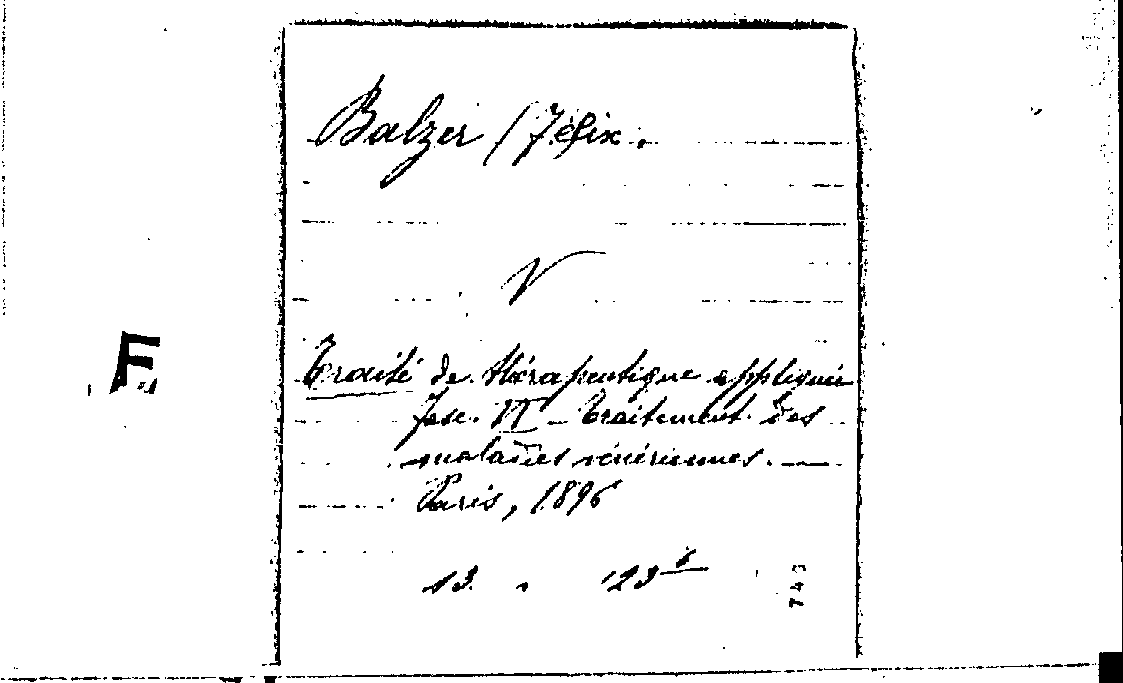 Balzer (Félix.
V
F
Traité de thérapeutique appliquée
Fasc. VI - Traitement des
maladies vénériennes. —
Paris, 1896
13 . 23
743